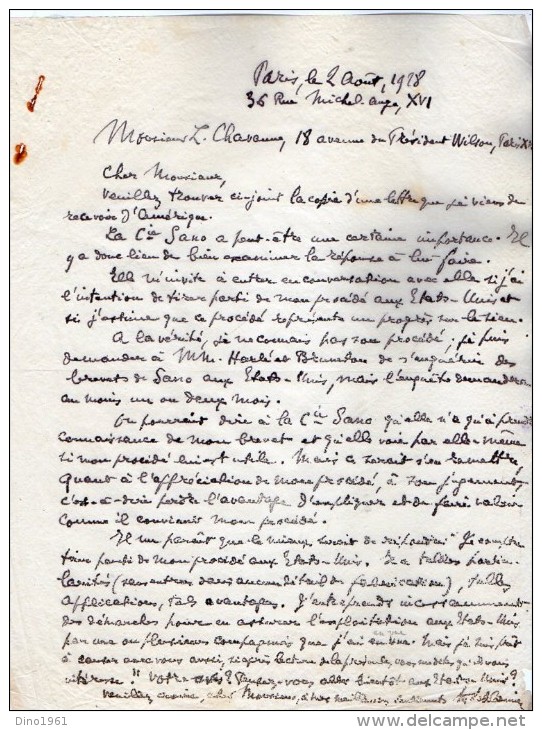 Paris, le 2 Août, 1928
36 Rue Michel-Ange, XVI
Monsieur L. Chavanne, 18 avenue du Président Wilson, Paris XVI
Cher Monsieur,
veuillez trouver ci-joint la copie d'une lettre que je viens de
recevoir d'Amérique.
La Cie Sano a peut-être une certaine importance. Il
y a donc lieu de bien examiner la réponse à lui faire.
Elle m'invite à entrer en conversation avec elle si j'ai
l'intention de tirer parti de mon procédé aux Etats-Unis et
si j'estime que ce procédé représente un progrès sur le sien.
A la vérité, je ne connais pas son procédé ; je puis
demander à MM. Harlé et Bruneton de s'enquérir des
brevets de Sano aux Etats-Unis, mais l'enquête demandera
au moins un ou deux mois.
On pourrait dire à la Cie Sano qu'elle n'a qu'à prendre
connaissance de mon brevet et qu'elle voie par elle-même
si mon procédé lui est utile. Mais ce serait s'en remettre,
quant à l'appréciation de mon procédé à son jugement,
c'est-à-dire perdre l'avantage d'expliquer et de faire valoir
comme il convient mon procédé.
Il me paraît que le mieux serait de répondre : "Je compte
tirer parti de mon procédé aux Etats-Unis. Il a telles particu-
larités (sans entrer dans aucun détail de fabrication), telles
applications, tels avantages. J'entreprends incessamment
des démarches pour en assurer l'exploitation aux Etats-Unis
par une ou plusieurs compagnies que j'ai en vue. Mais je suis prêt
à causer avec vous aussi, si après lecture de la présente, vous
" Votre avis ? Pensez-vous aller bientôt aux Etats-Unis ?
Veuillez croire, cher Monsieur, à mes meilleurs sentiments
Dino1961
www.delcampe.net